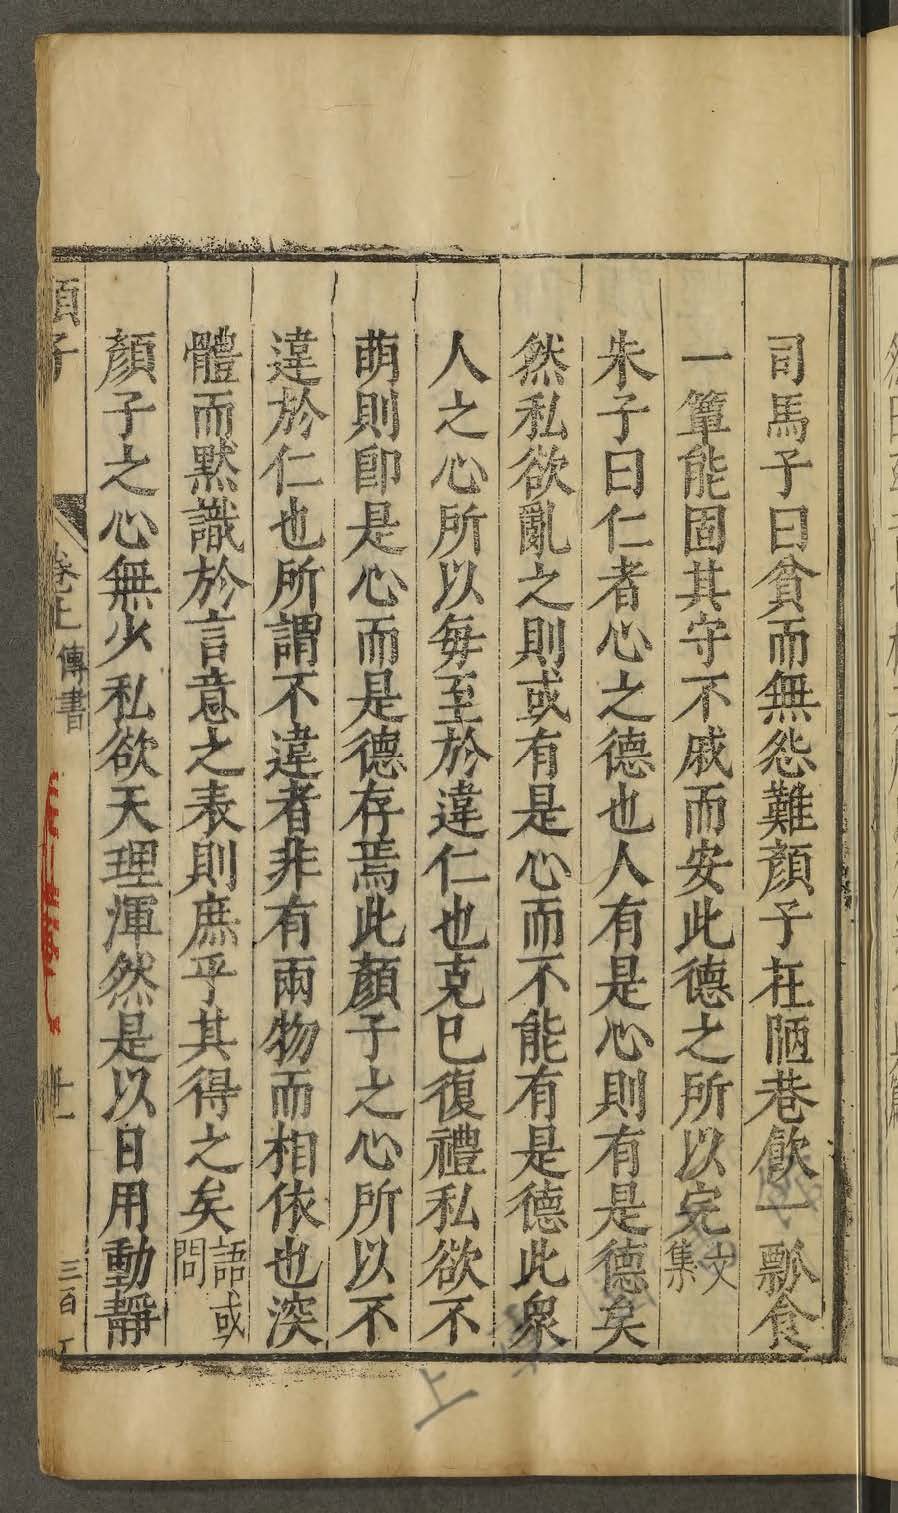 司馬子曰貧而無怨難顏子在陋巷飲一瓢食
一簞能固其守不戚而安此德之所以完文集
朱子曰仁者心之德也人有是心則有是德矣
然私欲亂之則或有是心而不能有是德此衆
人之心所以每至於違仁也克已復禮私欲不
萌則卽是心而是德存焉此顏子之心所以不
違於仁也所謂不違者非有兩物而相依也深
體而默識於言意之表則庶乎其得之矣語或問
顏子之心無少私欲天理渾然是以日用動靜
卷上 傳書
三百
上